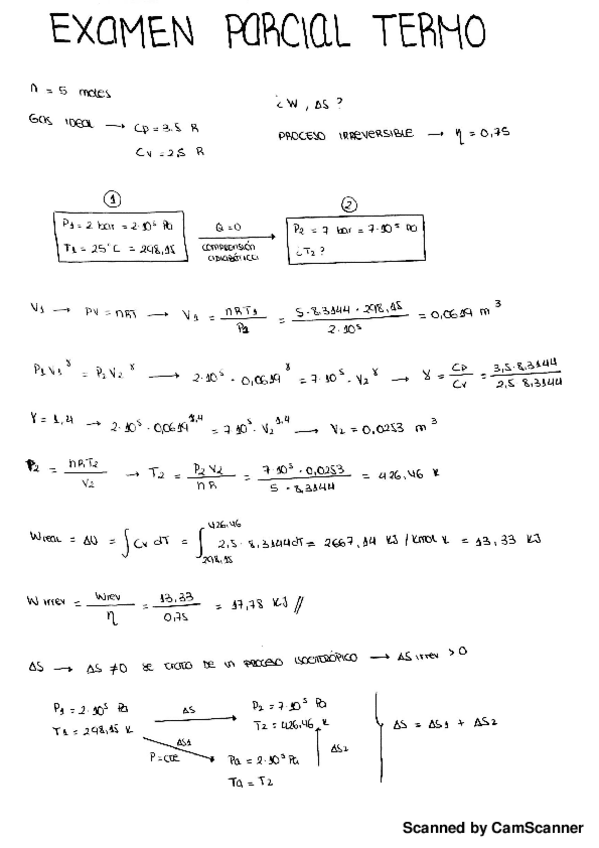 EXAMEN PARCIAL TERMO
n = 5 moles
¿W, ΔS?
GAS IDEAL → Cp = 3.5 R
PROCESO IRREVERSIBLE → η = 0,75
Cv = 2,5 R
① ②
P1 = 2 bar = 2·10⁵ Pa
T1 = 25°C = 298,15
Q = 0
COMPRESIÓN
ADIABÁTICA
P2 = 7 bar = 7·10⁵ Pa
¿T2?
V1 → PV = nRT → V1 = nRT1 / P1 = 5·8.3144·298,15 / 2·10⁵ = 0,0619 m³
P1V1^γ = P2V2^γ → 2·10⁵·0,0619^γ = 7·10⁵·V2^γ → γ = Cp / Cv = 3,5·8,3144 / 2,5 8,3144
γ = 1,4 → 2·10⁵·0,0619^1,4 = 7·10⁵·V2^1,4 → V2 = 0,0253 m³
P2 = nRT2 / V2 → T2 = P2V2 / nR = 7·10⁵·0,0253 / 5·8,3144 = 426,46 K
W = ΔU = ∫ Cv dT = ∫ 298,15 426,46 2,5·8,3144 dT = 2667,14 KJ/Kmol K = 13,33 KJ
W irrev = Wrev / η = 13,33 / 0,75 = 17,78 KJ //
ΔS → ΔS ≠ 0 SE DE UN PROCESO ISOENTRÓPICO → ΔS irrev > 0
P1 = 2·10⁵ Pa
T1 = 298,15 K
ΔS
P2 = 7·10⁵ Pa
T2 = 426,46 K
ΔS = ΔS1 + ΔS2
ΔS1
P = CTE
ΔS2
Pa = 2·10⁵ Pa
Ta = T2
Scanned by CamScanner